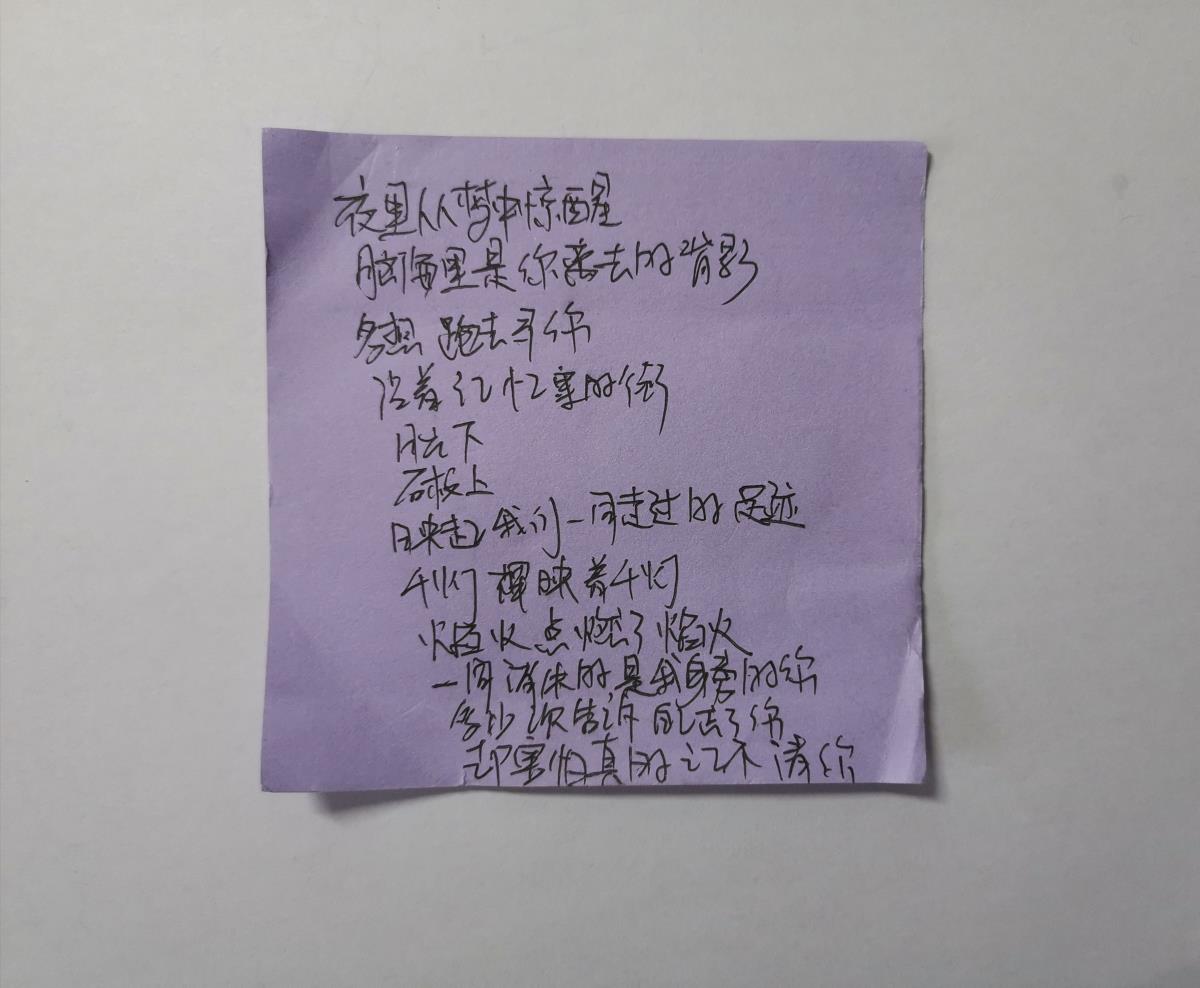 夜里从梦中惊醒
脑海里是你离去的背影
多想跑去寻你
沿着记忆里的街
月下
石板上
映起我们一同走过的足迹
灯辉映着灯
焰火点燃了焰火
一同消失的是我身旁的你
多少次告诉自己忘了你
却害怕真的记不清你